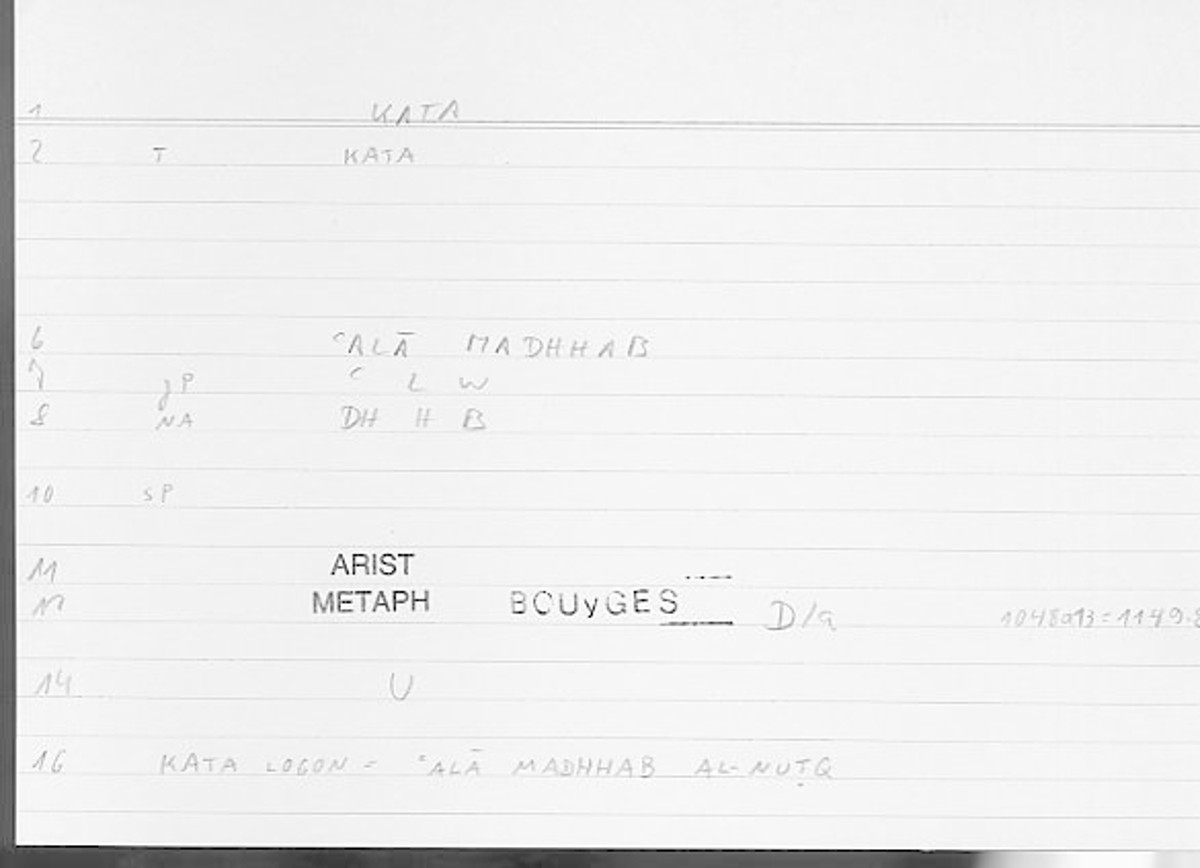 1 KATA
2 T KATA
6 ʿALĀ MADHHAB
7 gP ʿ L W
8 NA DH H B
10 sP
11 ARIST
METAPH BOUyGES D/a 1048a13=1149.8
14 U
16 KATA LOGON = ʿALĀ MADHHAB AL-NUṬQ